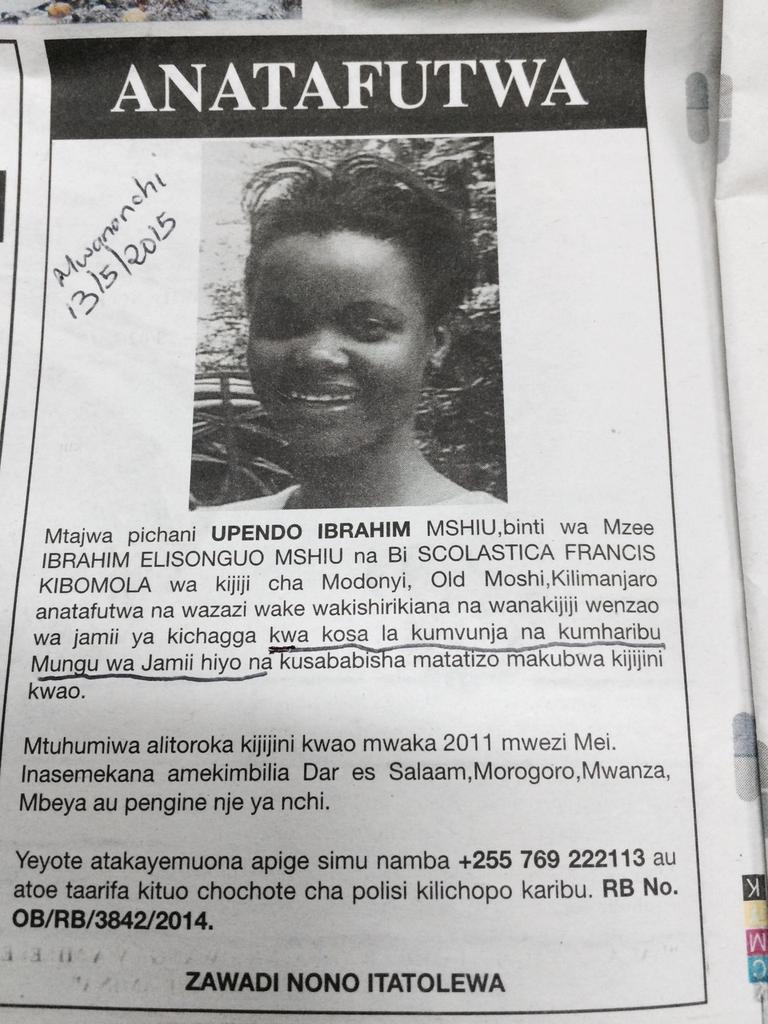 ANATAFUTWA
Mwananchi
13/5/2015
Mtajwa pichani UPENDO IBRAHIM MSHIU,binti wa Mzee
IBRAHIM ELISONGUO MSHIU na Bi SCOLASTICA FRANCIS
KIBOMOLA wa kijiji cha Modonyi, Old Moshi,Kilimanjaro
anatafutwa na wazazi wake wakishirikiana na wanakijiji wenzao
wa jamii ya kichagga kwa kosa la kumvunja na kumharibu
Mungu wa Jamii hiyo na kusababisha matatizo makubwa kijijini
kwao.
Mtuhumiwa alitoroka kijijini kwao mwaka 2011 mwezi Mei.
Inasemekana amekimbilia Dar es Salaam,Morogoro,Mwanza,
Mbeya au pengine nje ya nchi.
Yeyote atakayemuona apige simu namba +255 769 222113 au
atoe taarifa kituo chochote cha polisi kilichopo karibu. RB No.
OB/RB/3842/2014.
ZAWADI NONO ITATOLEWA
K
M
C